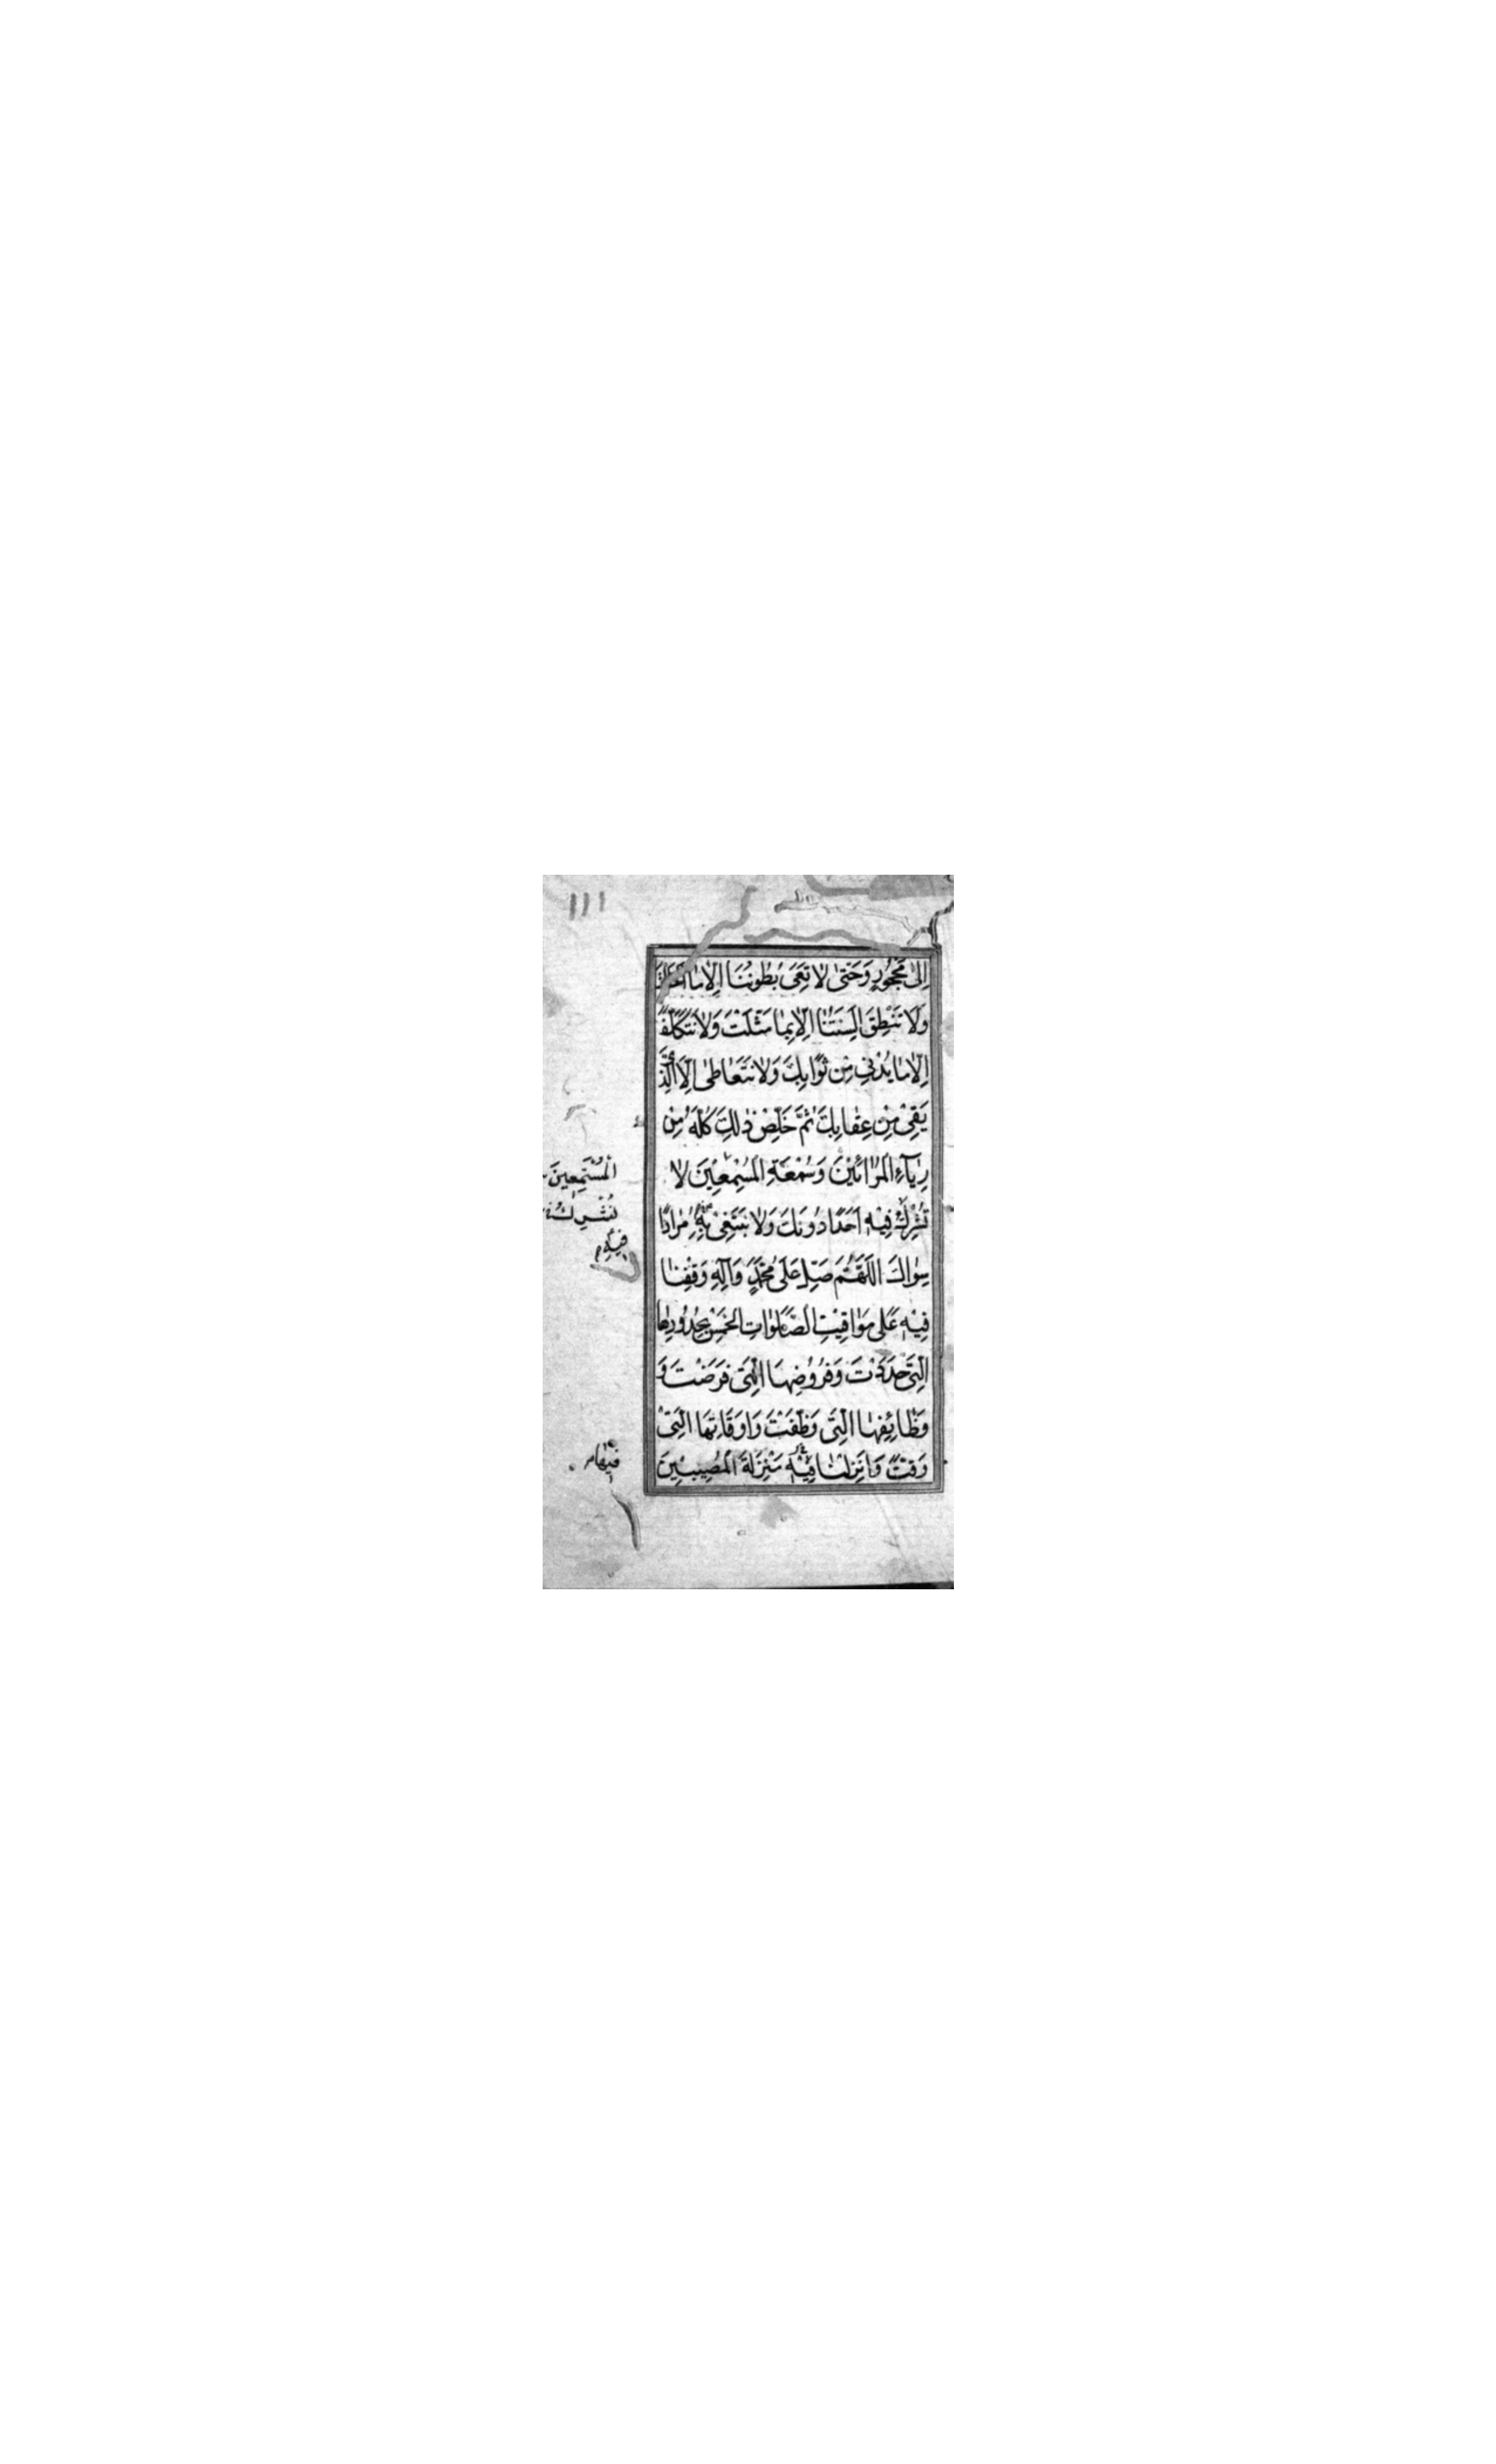 ١١١
اِلىٰ مَحْجُورٍ وَحَتّىٰ لا تَعِيَ بُطُونُنَا اِلّا ما اَحْلَلْتَ
وَلا تَنْطِقَ اَلْسِنَتُنٰا اِلّا بِمٰا مَثَّلْتَ وَلا نَتَكَلَّفَ
اِلّا مٰا يُدْنِي مِنْ ثَوٰابِكَ وَلا نَتَعٰاطىٰ اِلَّا الَّذِي
يَقِيْ مِنْ عِقٰابِكَ ثُمَّ خَلِّصْ ذٰلِكَ كُلَّهُ مِنْ
رِيٰآءِ الْمُرٰائِيْنَ وَسُمْعَةِ الْمُسْمِعِيْنَ لا
نُشْرِكُ فِيْهِ اَحَدًا دُونَكَ وَلا نَبْتَغِيْ بِهِ مُرٰادًا
سِوٰاكَ اَللّٰهُمَّ صَلِّ عَلىٰ مُحَمَّدٍ وَآلِهِ وَقِفْنٰا
فِيْهِ عَلىٰ مَوٰاقِيْتِ الصَّلَوٰاتِ الْخَمْسِ بِحُدُودِهٰا
الَّتِيْ حَدَّدْتَ وَفُرُوْضِهَا الَّتِيْ فَرَضْتَ وَ
وَظٰائِفِهٰا الَّتِيْ وَظَّفْتَ وَاَوْقَاتِهَا الَّتِيْ
وَقَّتَّ وَاَنْزِلْنٰا فِيْهِ مَنْزِلَةَ الْمُصِيْبِيْنَ
الْمُسْتَمِعِينَ
نُشْرِكُ
فِيهِ
فِيْهٰا